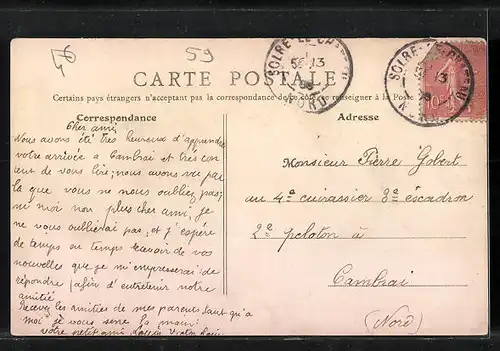 59
SOLRE-LE-CHATEAU
NORD
SOLRE-LE-CHATEAU
NORD
CARTE POSTALE
Certains pays étrangers n'acceptent pas la correspondance de ce côté (se renseigner à la Poste)
Correspondance
Adresse
Cher ami
Nous avons été très heureux d'apprendre
votre arrivée a Cambrai et très con
tent de vous lire; nous avons vu par
la que vous ne nous oubliez pas;
ni moi non plus cher ami, je
ne vous oublierai pas, et j'espére
de temps en temps recevoir de vos
nouvelles que je m'empresserai de
répondre afin d'entretenir notre
amitié
Recevez les amitiées de mes parents, tant qu'a
moi je vous serre la main
votre petit ami Louis
Monsieur Pierre Gobert
au 4e cuirassier 3e éscadron
2e peloton à
Cambrai
(Nord)